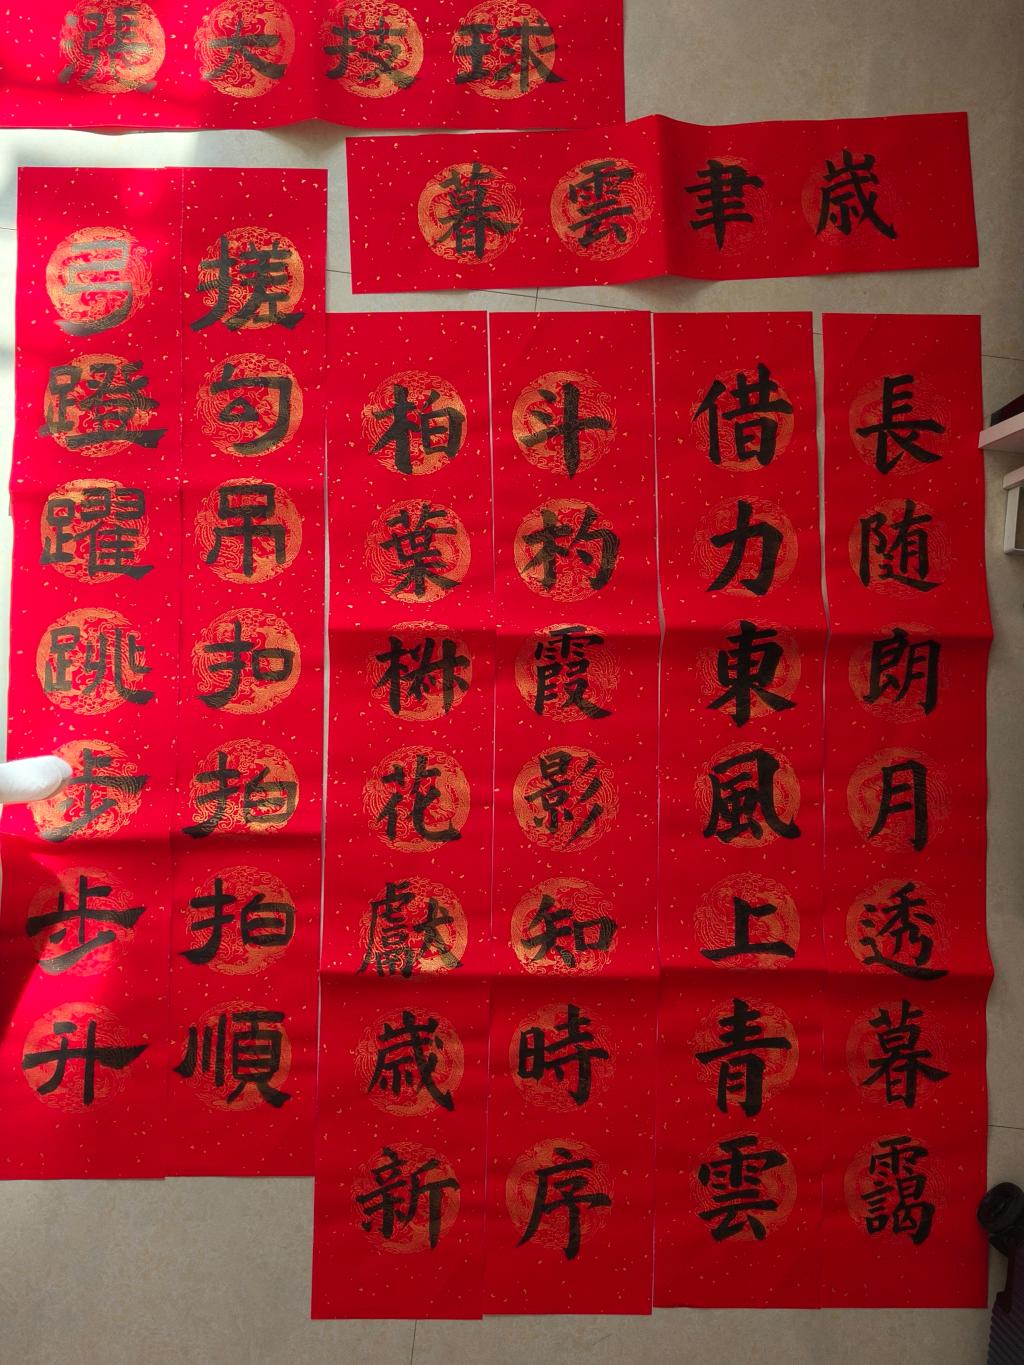 球技大漲
歳聿雲暮
長随朗月透暮靄
借力東風上青雲
斗杓霞影知時序
柏葉椒花獻歳新
搓勾吊扣拍拍順
弓蹬躍跳步步升